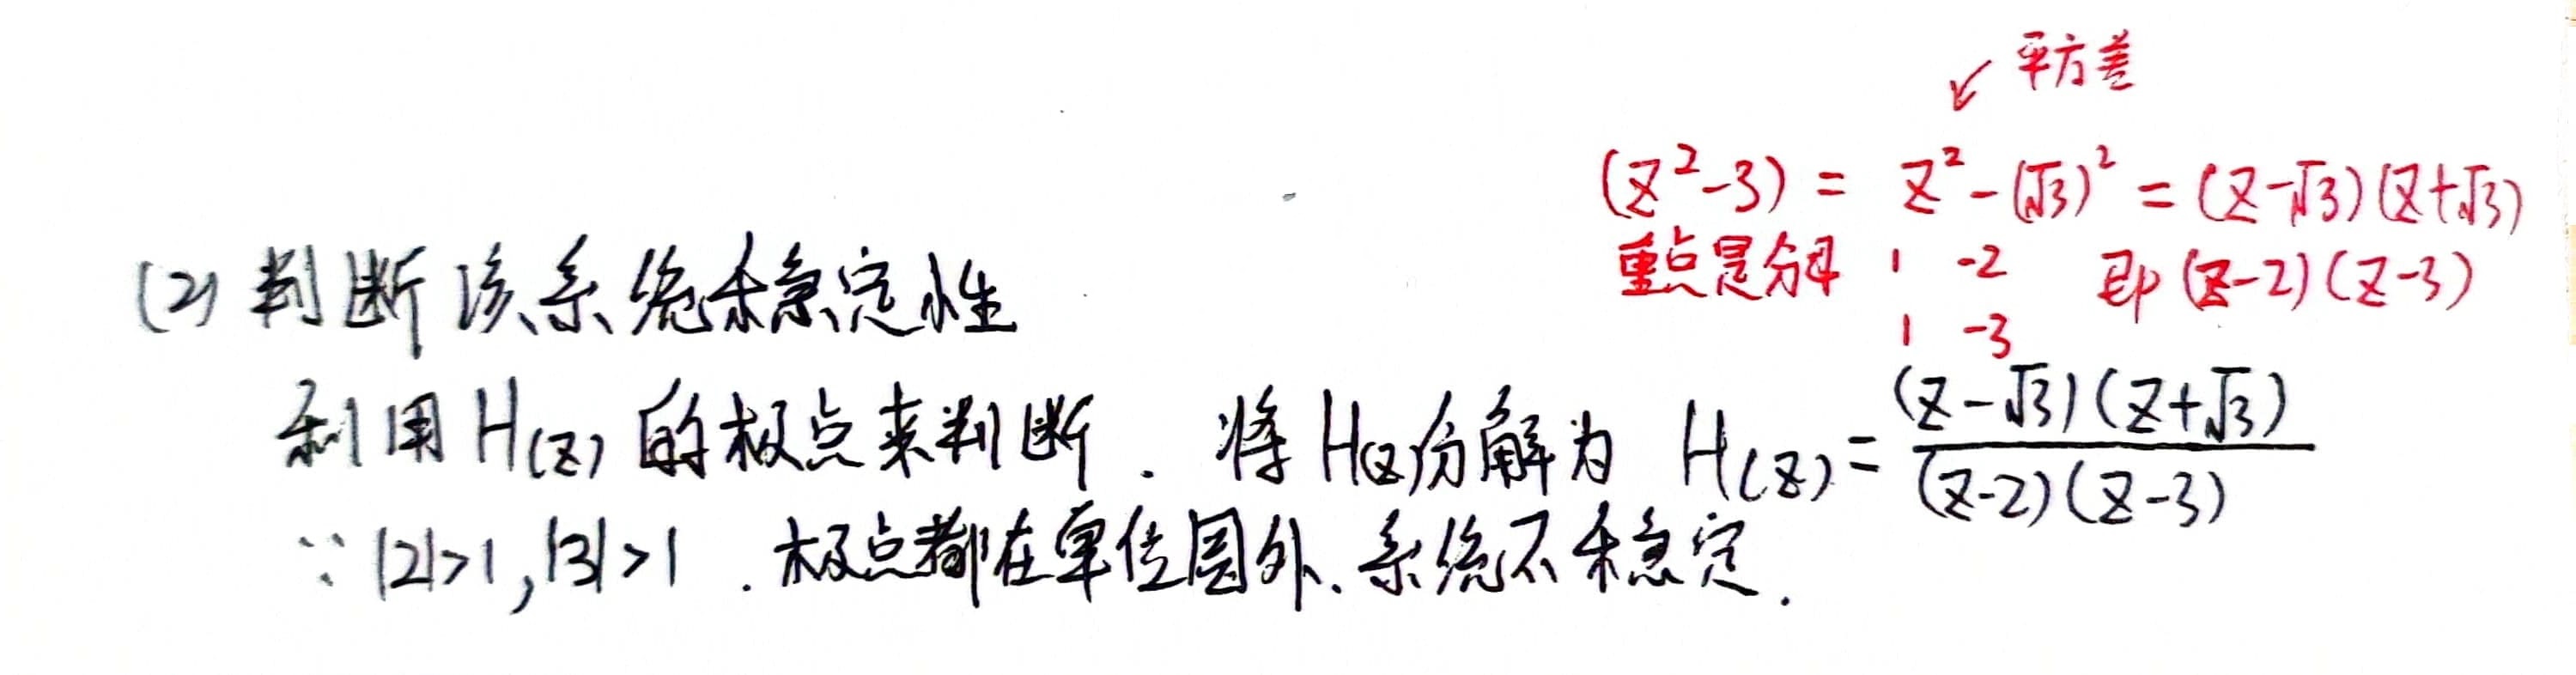 ↙ 平方差
(z²-3) = z²-(√3)² = (z-√3)(z+√3)
重点是分母 1 -2 即 (z-2)(z-3)
1 -3
(2) 判断该系统稳定性
利用 H(z) 的极点来判断. 将 H(z)分解为 H(z) = \frac{(z-√3)(z+√3)}{(z-2)(z-3)}
∵ |2|>1, |3|>1. 极点都在单位圆外、系统不稳定.